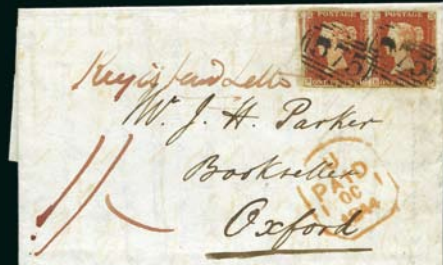 POSTAGE POSTAGE
Registered Letter
Mr. J. H. Parker
Bookseller
Oxford
1/
U
PAID
1 OC 1
1844